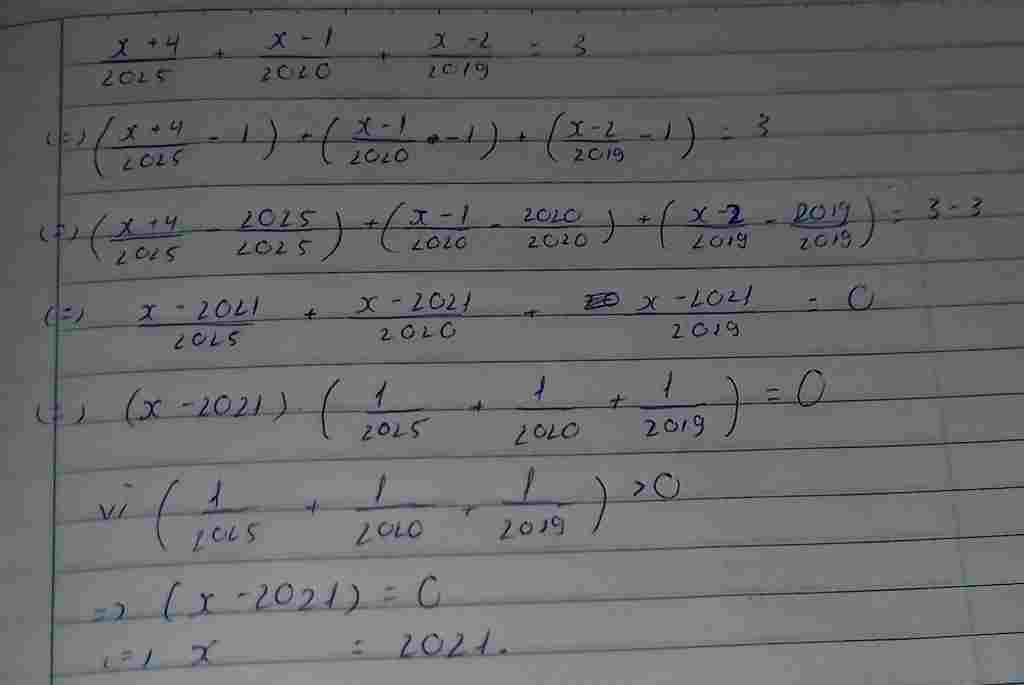 x+4/2025 + x-1/2020 + x-2/2019 = 3
(=) (x+4/2025 - 1) + (x-1/2020 - 1) + (x-2/2019 - 1) = 3
(=) (x+4/2025 - 2025/2025) + (x-1/2020 - 2020/2020) + (x-2/2019 - 2019/2019) = 3-3
(=) x-2021/2025 + x-2021/2020 + x-2021/2019 = 0
(=) (x-2021) . (1/2025 + 1/2020 + 1/2019) = 0
vì (1/2025 + 1/2020 + 1/2019) > 0
=> (x-2021) = 0
(=) x = 2021.